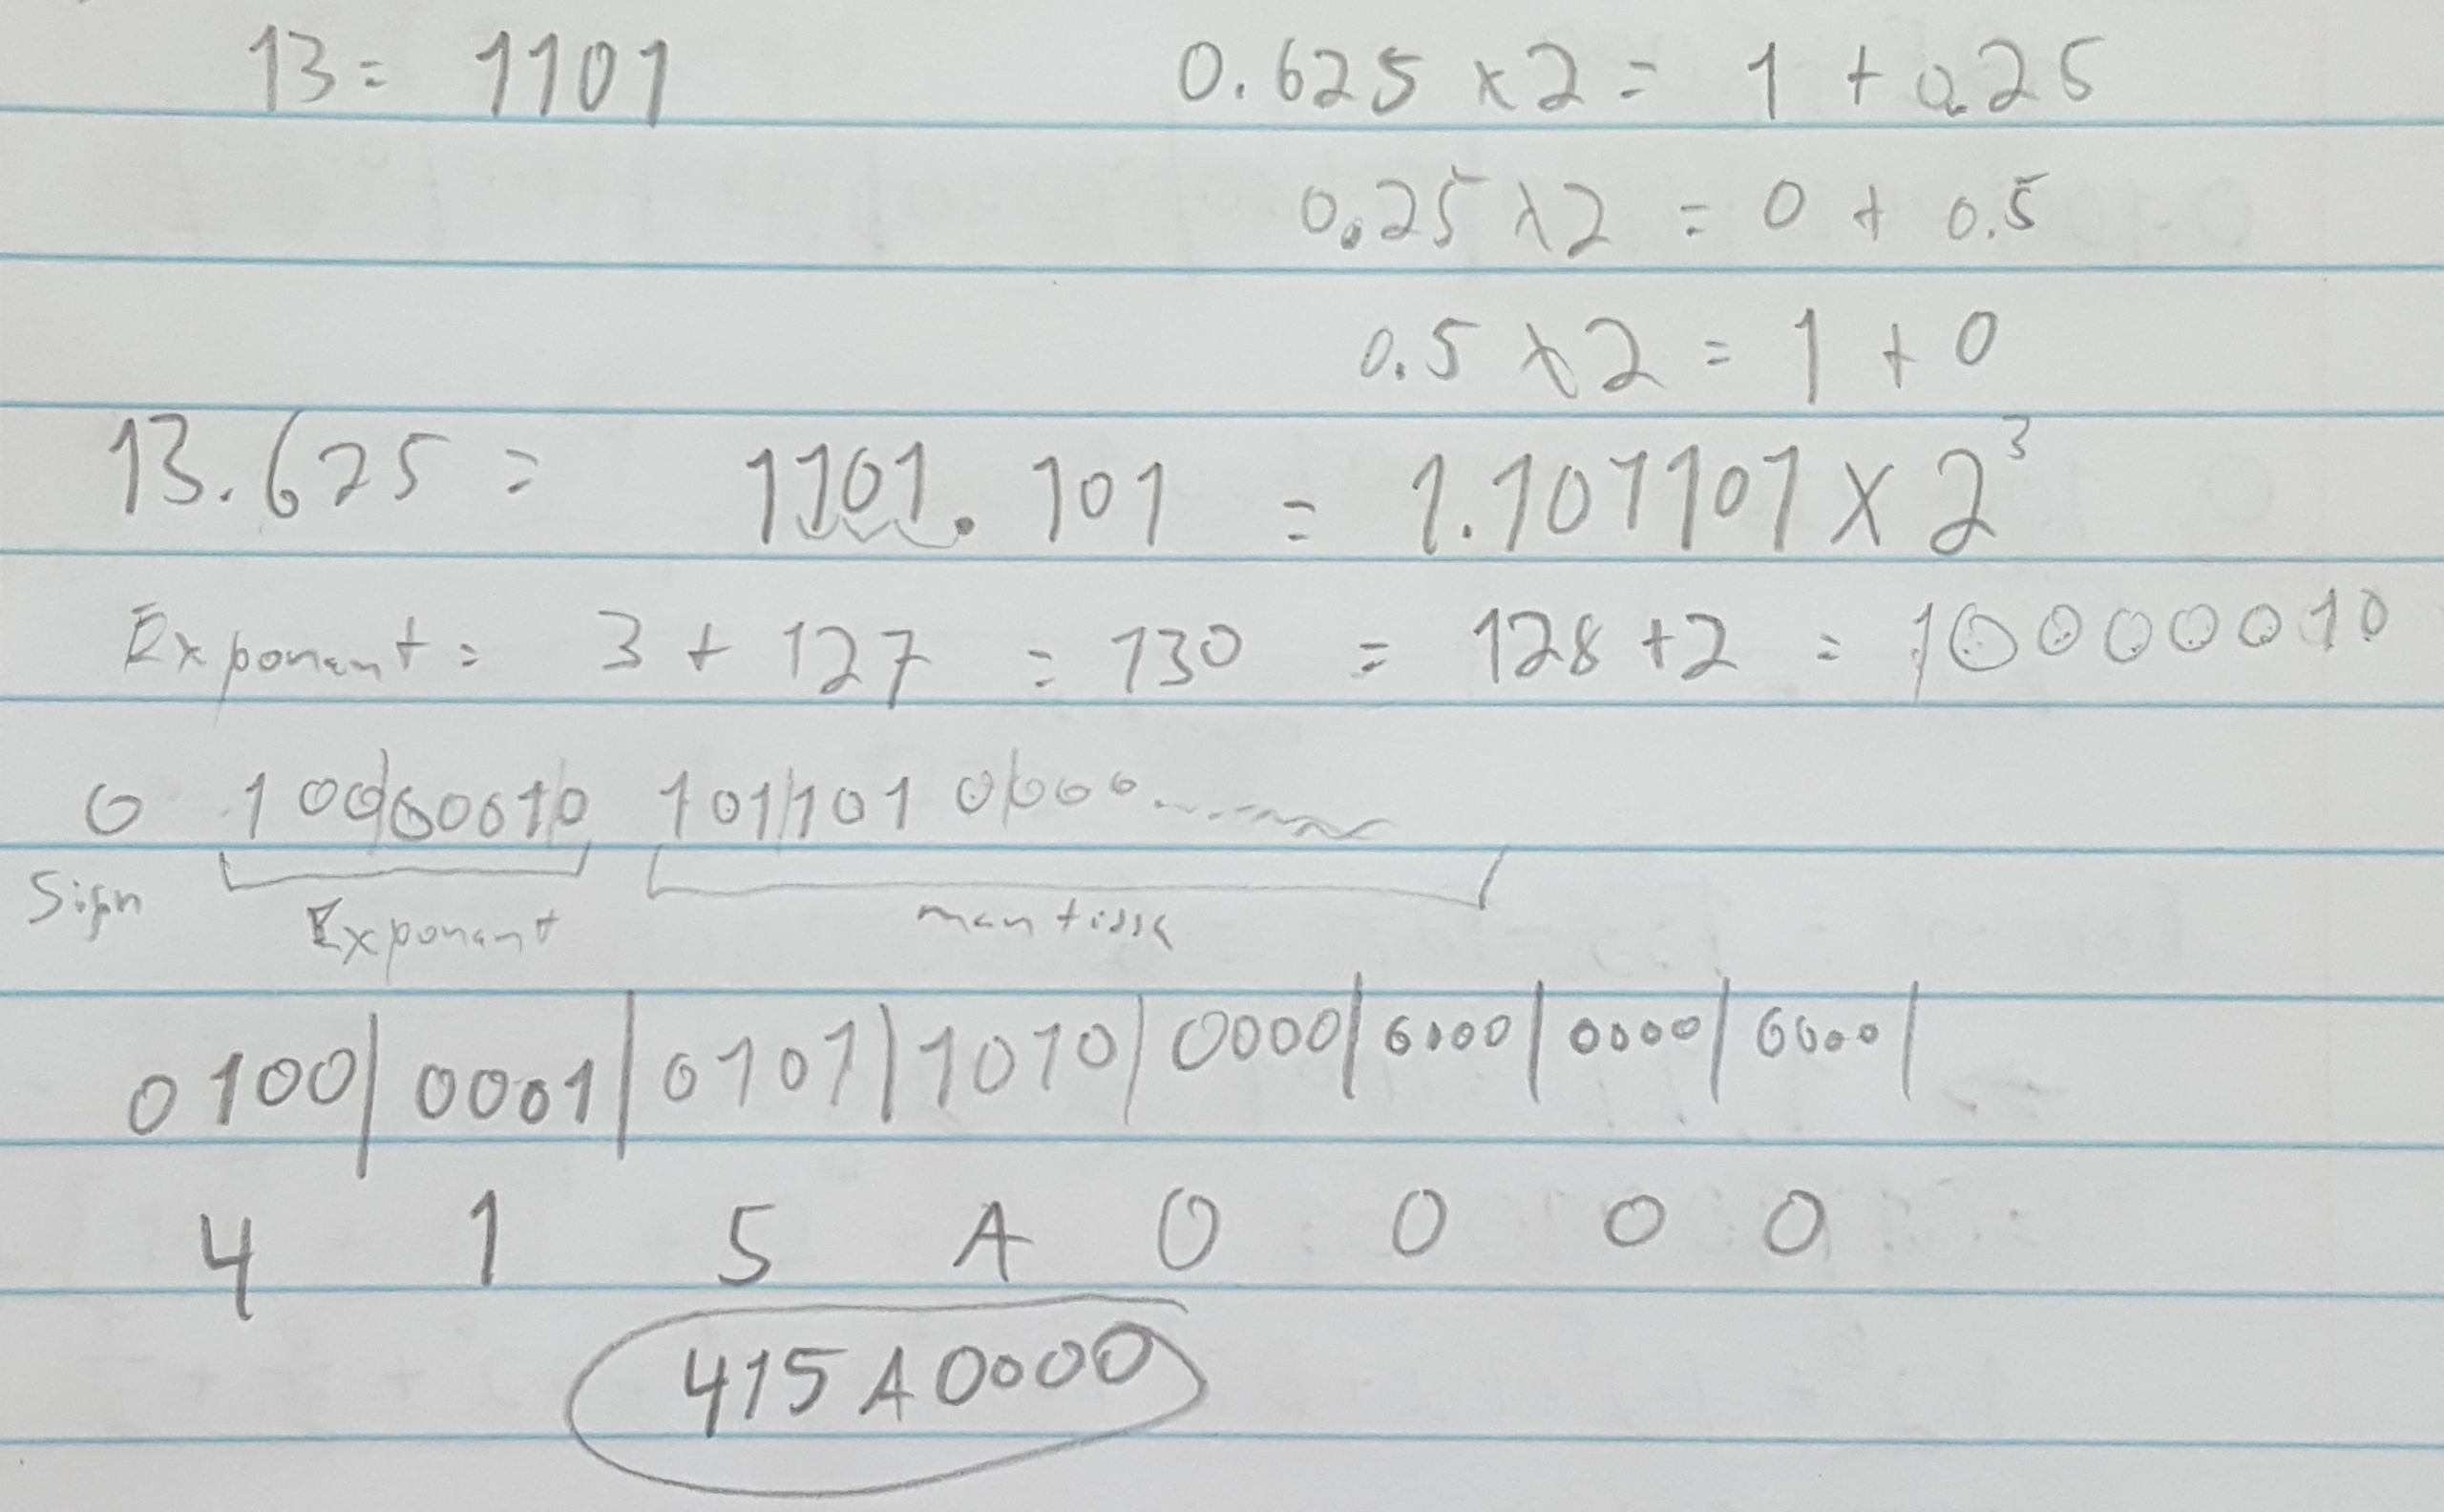 13 = 1101 0.625 x 2 = 1 + 0.25
0.25 x 2 = 0 + 0.5
0.5 x 2 = 1 + 0
13.625 = 1101.101 = 1.101101 x 2³
Exponent = 3 + 127 = 130 = 128 + 2 = 10000010
0 10000010 101101 0000.......
Sign Exponent mantissa
0100|0001|0101|1010|0000|0000|0000|0000|
4 1 5 A 0 0 0 0
415A0000